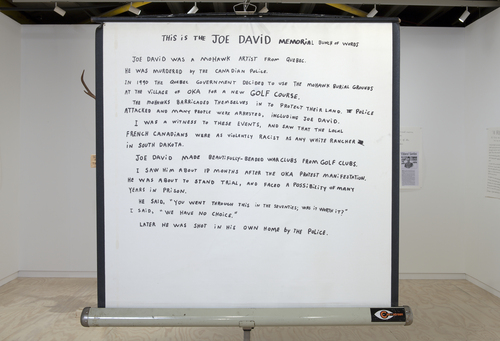 THIS IS THE JOE DAVID MEMORIAL BUNCH OF WORDS
JOE DAVID WAS A MOHAWK ARTIST FROM QUEBEC.
HE WAS MURDERED BY THE CANADIAN POLICE.
IN 1990 THE QUEBEC GOVERNMENT DECIDED TO USE THE MOHAWK BURIAL GROUNDS
AT THE VILLAGE OF OKA FOR A NEW GOLF COURSE.
THE MOHAWKS BARRICADED THEMSELVES IN TO PROTECT THEIR LAND. POLICE
ATTACKED AND MANY PEOPLE WERE ARRESTED, INCLUDING JOE DAVID.
I WAS A WITNESS TO THESE EVENTS, AND SAW THAT THE LOCAL
FRENCH CANADIANS WERE AS VIOLENTLY RACIST AS ANY WHITE RANCHER
IN SOUTH DAKOTA.
JOE DAVID MADE BEAUTIFULLY-BEADED WAR CLUBS FROM GOLF CLUBS.
I SAW HIM ABOUT 18 MONTHS AFTER THE OKA PROTEST MANIFESTATION.
HE WAS ABOUT TO STAND TRIAL, AND FACED A POSSIBILITY OF MANY
YEARS IN PRISON.
HE SAID, "YOU WENT THROUGH THIS IN THE SEVENTIES; WAS IT WORTH IT?"
I SAID, "WE HAVE NO CHOICE."
LATER HE WAS SHOT IN HIS OWN HOME BY THE POLICE.